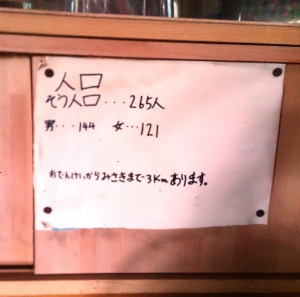 人口
そう人口...265人
男...144 女...121
おでんけいからみさきまで3Kmあります。